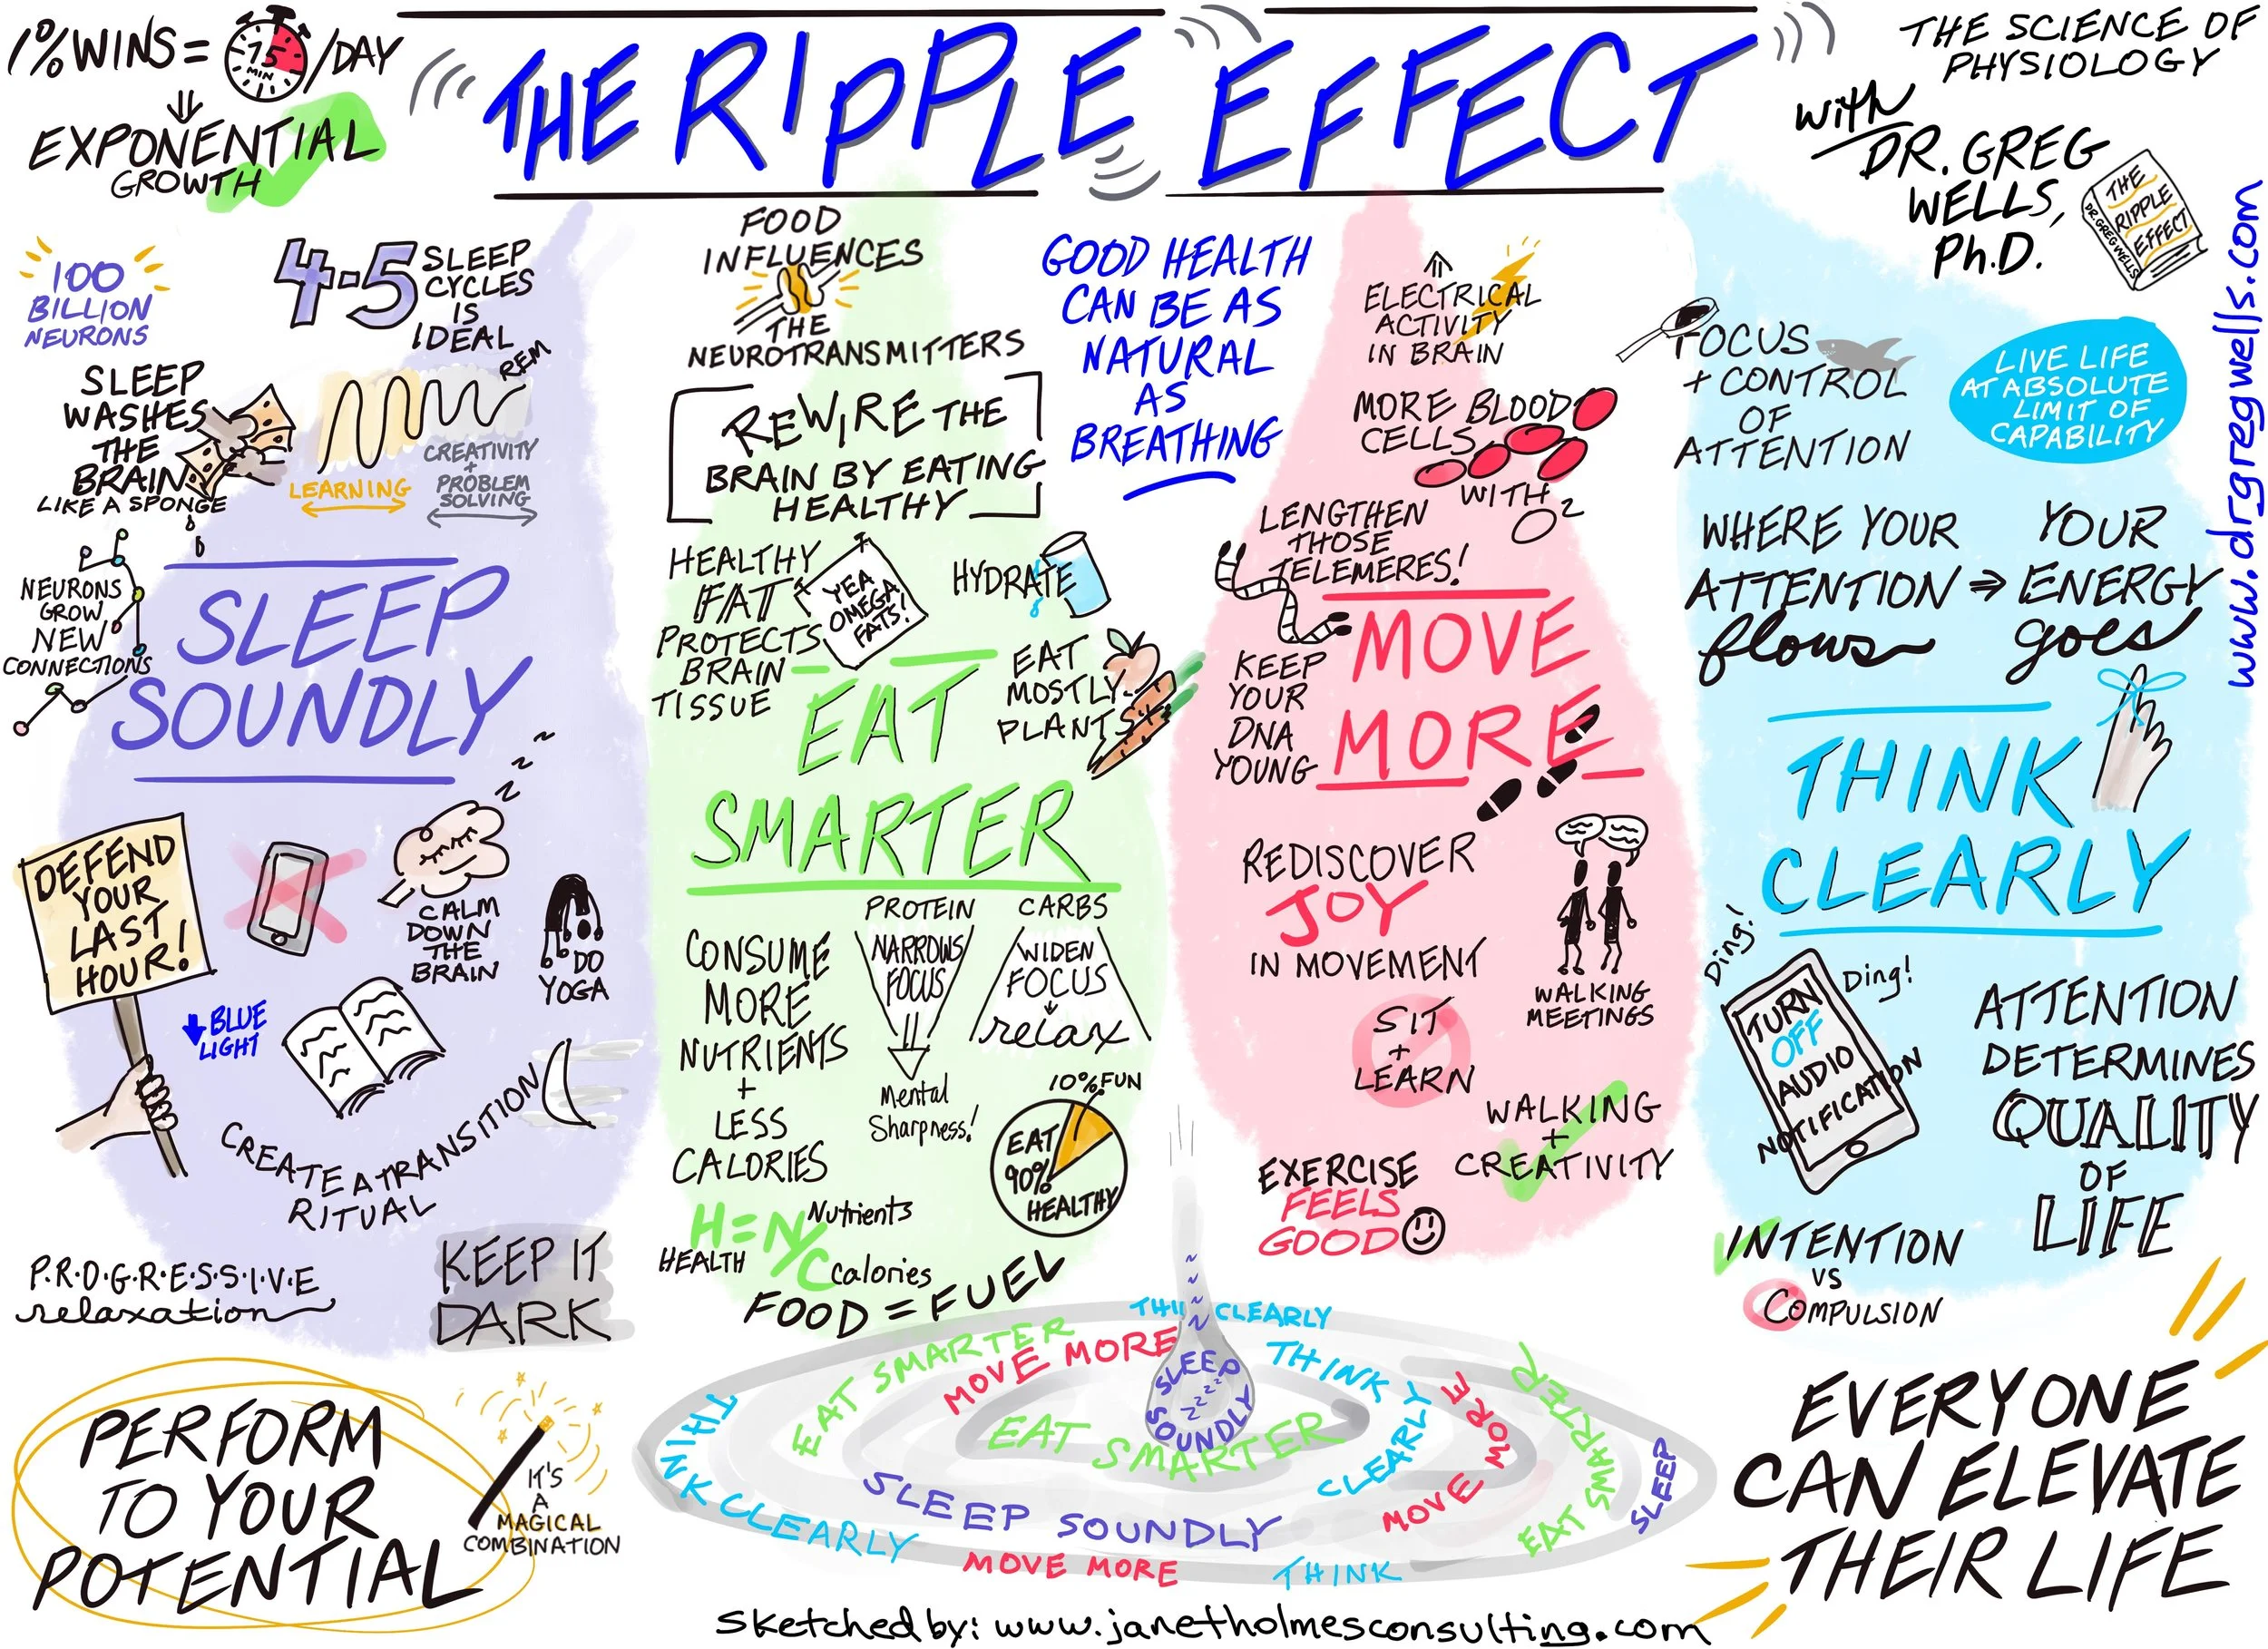 1% WINS = 15 MIN /DAY
EXPONENTIAL
GROWTH
THE RIPPLE EFFECT
THE SCIENCE OF
PHYSIOLOGY
with
DR. GREG
WELLS,
Ph.D.
THE
RIPPLE
EFFECT
DR. GREG WELLS
www.drgregwells.com
100
BILLION
NEURONS
4-5 SLEEP
CYCLES
IS
IDEAL
SLEEP
WASHES
THE
BRAIN
LIKE A SPONGE
REM
LEARNING
CREATIVITY
+
PROBLEM
SOLVING
NEURONS
GROW
NEW
CONNECTIONS
SLEEP
SOUNDLY
DEFEND
YOUR
LAST
HOUR!
z z z z
CALM
DOWN
THE
BRAIN
DO
YOGA
BLUE
LIGHT
CREATE A TRANSITION
RITUAL
P.R.O.G.R.E.S.S.I.V.E
relaxation
KEEP IT
DARK
FOOD
INFLUENCES
THE
NEUROTRANSMITTERS
REWIRE THE
BRAIN BY EATING
HEALTHY
HEALTHY
FAT
PROTECTS
BRAIN
TISSUE
YEA
OMEGA
FATS!
HYDRATE
EAT
MOSTLY
PLANTS
EAT
SMARTER
CONSUME
MORE
NUTRIENTS
+
LESS
CALORIES
PROTEIN
NARROWS
FOCUS
Mental
Sharpness!
CARBS
WIDEN
FOCUS
relax
10% FUN
EAT
90%
HEALTHY
H = N/C
HEALTH
Nutrients
Calories
FOOD = FUEL
GOOD HEALTH
CAN BE AS
NATURAL
AS
BREATHING
ELECTRICAL
ACTIVITY
IN BRAIN
MORE BLOOD
CELLS
WITH
O2
LENGTHEN
THOSE
TELEMERES!
KEEP
YOUR
DNA
YOUNG
MOVE
MORE
REDISCOVER
JOY
IN MOVEMENT
WALKING
MEETINGS
SIT
+
LEARN
WALKING
+
CREATIVITY
EXERCISE
FEELS
GOOD
FOCUS
+ CONTROL
OF
ATTENTION
LIVE LIFE
AT ABSOLUTE
LIMIT OF
CAPABILITY
WHERE YOUR
ATTENTION
flows
YOUR
ENERGY
goes
THINK
CLEARLY
Ding!
Ding!
TURN
OFF
AUDIO
NOTIFICATION
ATTENTION
DETERMINES
QUALITY
OF
LIFE
INTENTION
VS
COMPULSION
PERFORM
TO YOUR
POTENTIAL
IT'S
A
MAGICAL
COMBINATION
CLEARLY
EAT SMARTER
MOVE MORE
SLEEP
z z z z
SOUNDLY
THINK
CLEARLY
EAT SMARTER
MOVE MORE
EAT SMARTER
SLEEP
THINK CLEARLY
SLEEP SOUNDLY
MOVE MORE
THINK
EVERYONE
CAN ELEVATE
THEIR LIFE
Sketched by: www.janetholmesconsulting.com